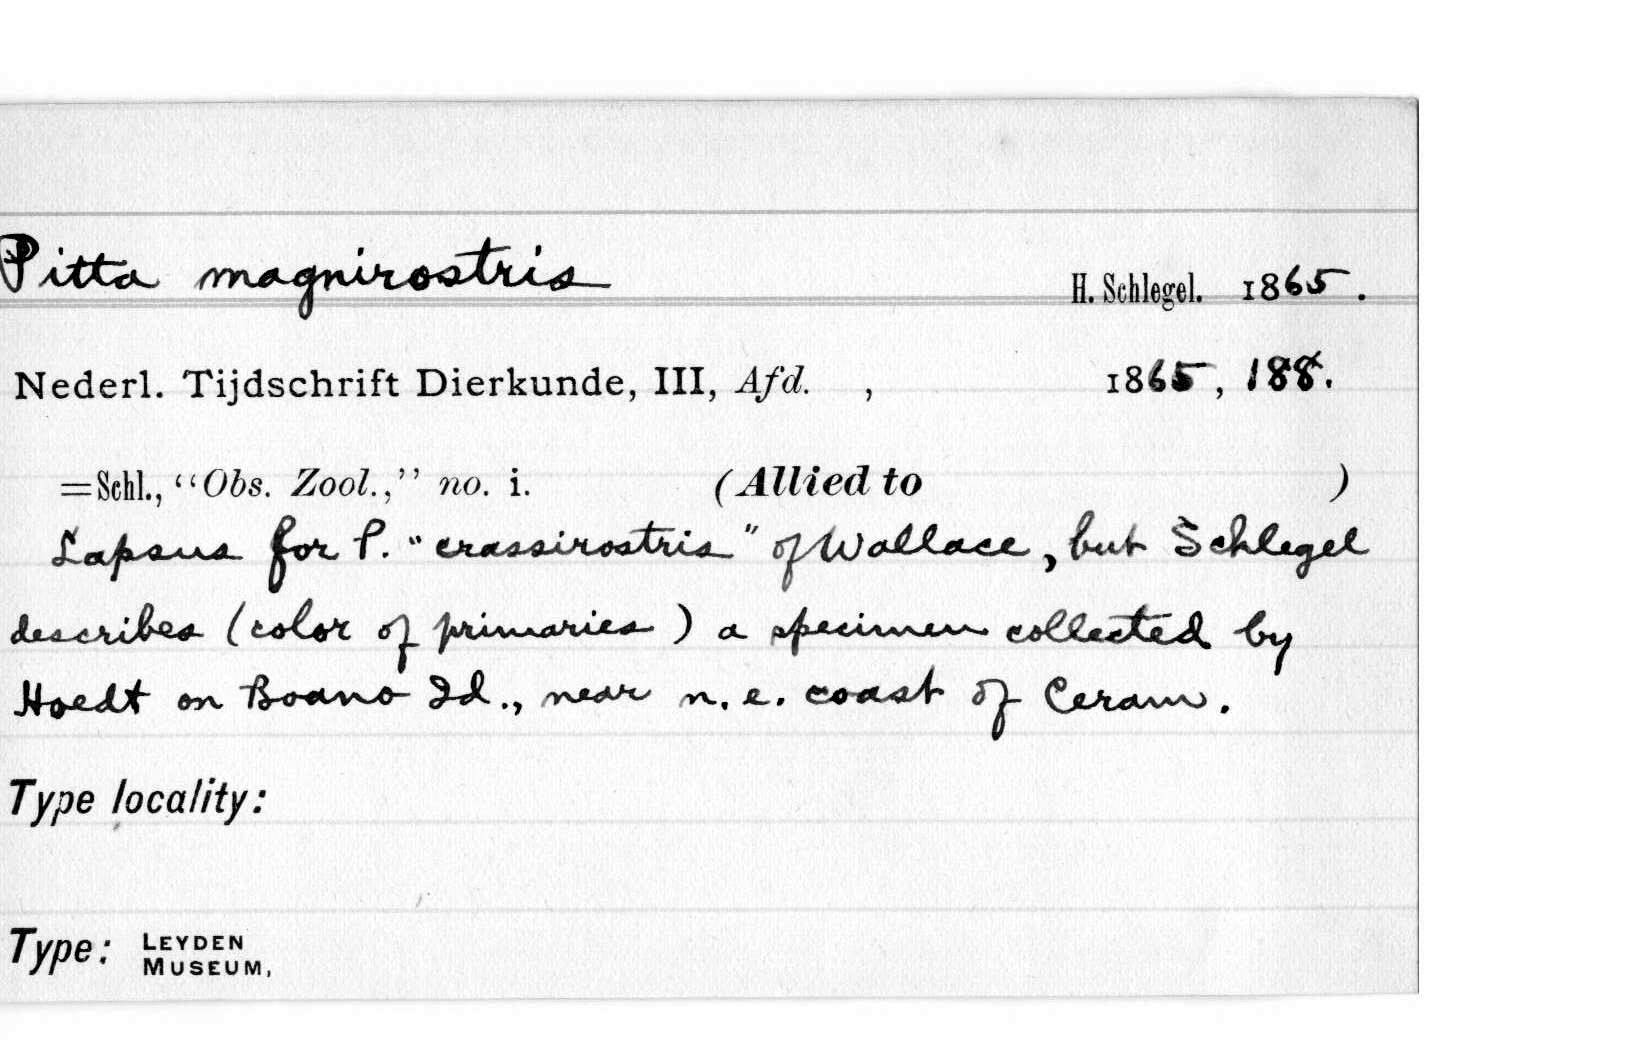 Pitta magnirostris H. Schlegel. 1865.
Nederl. Tijdschrift Dierkunde, III, Afd. , 1865, 188.
=Schl., “Obs. Zool.,” no. i. (Allied to )
Lapsus for P. "crassirostris" of Wallace, but Schlegel
describes (color of primaries) a specimen collected by
Hoedt on Boano Id., near n.e. coast of Ceram.
Type locality:
Type: LEYDEN
MUSEUM,